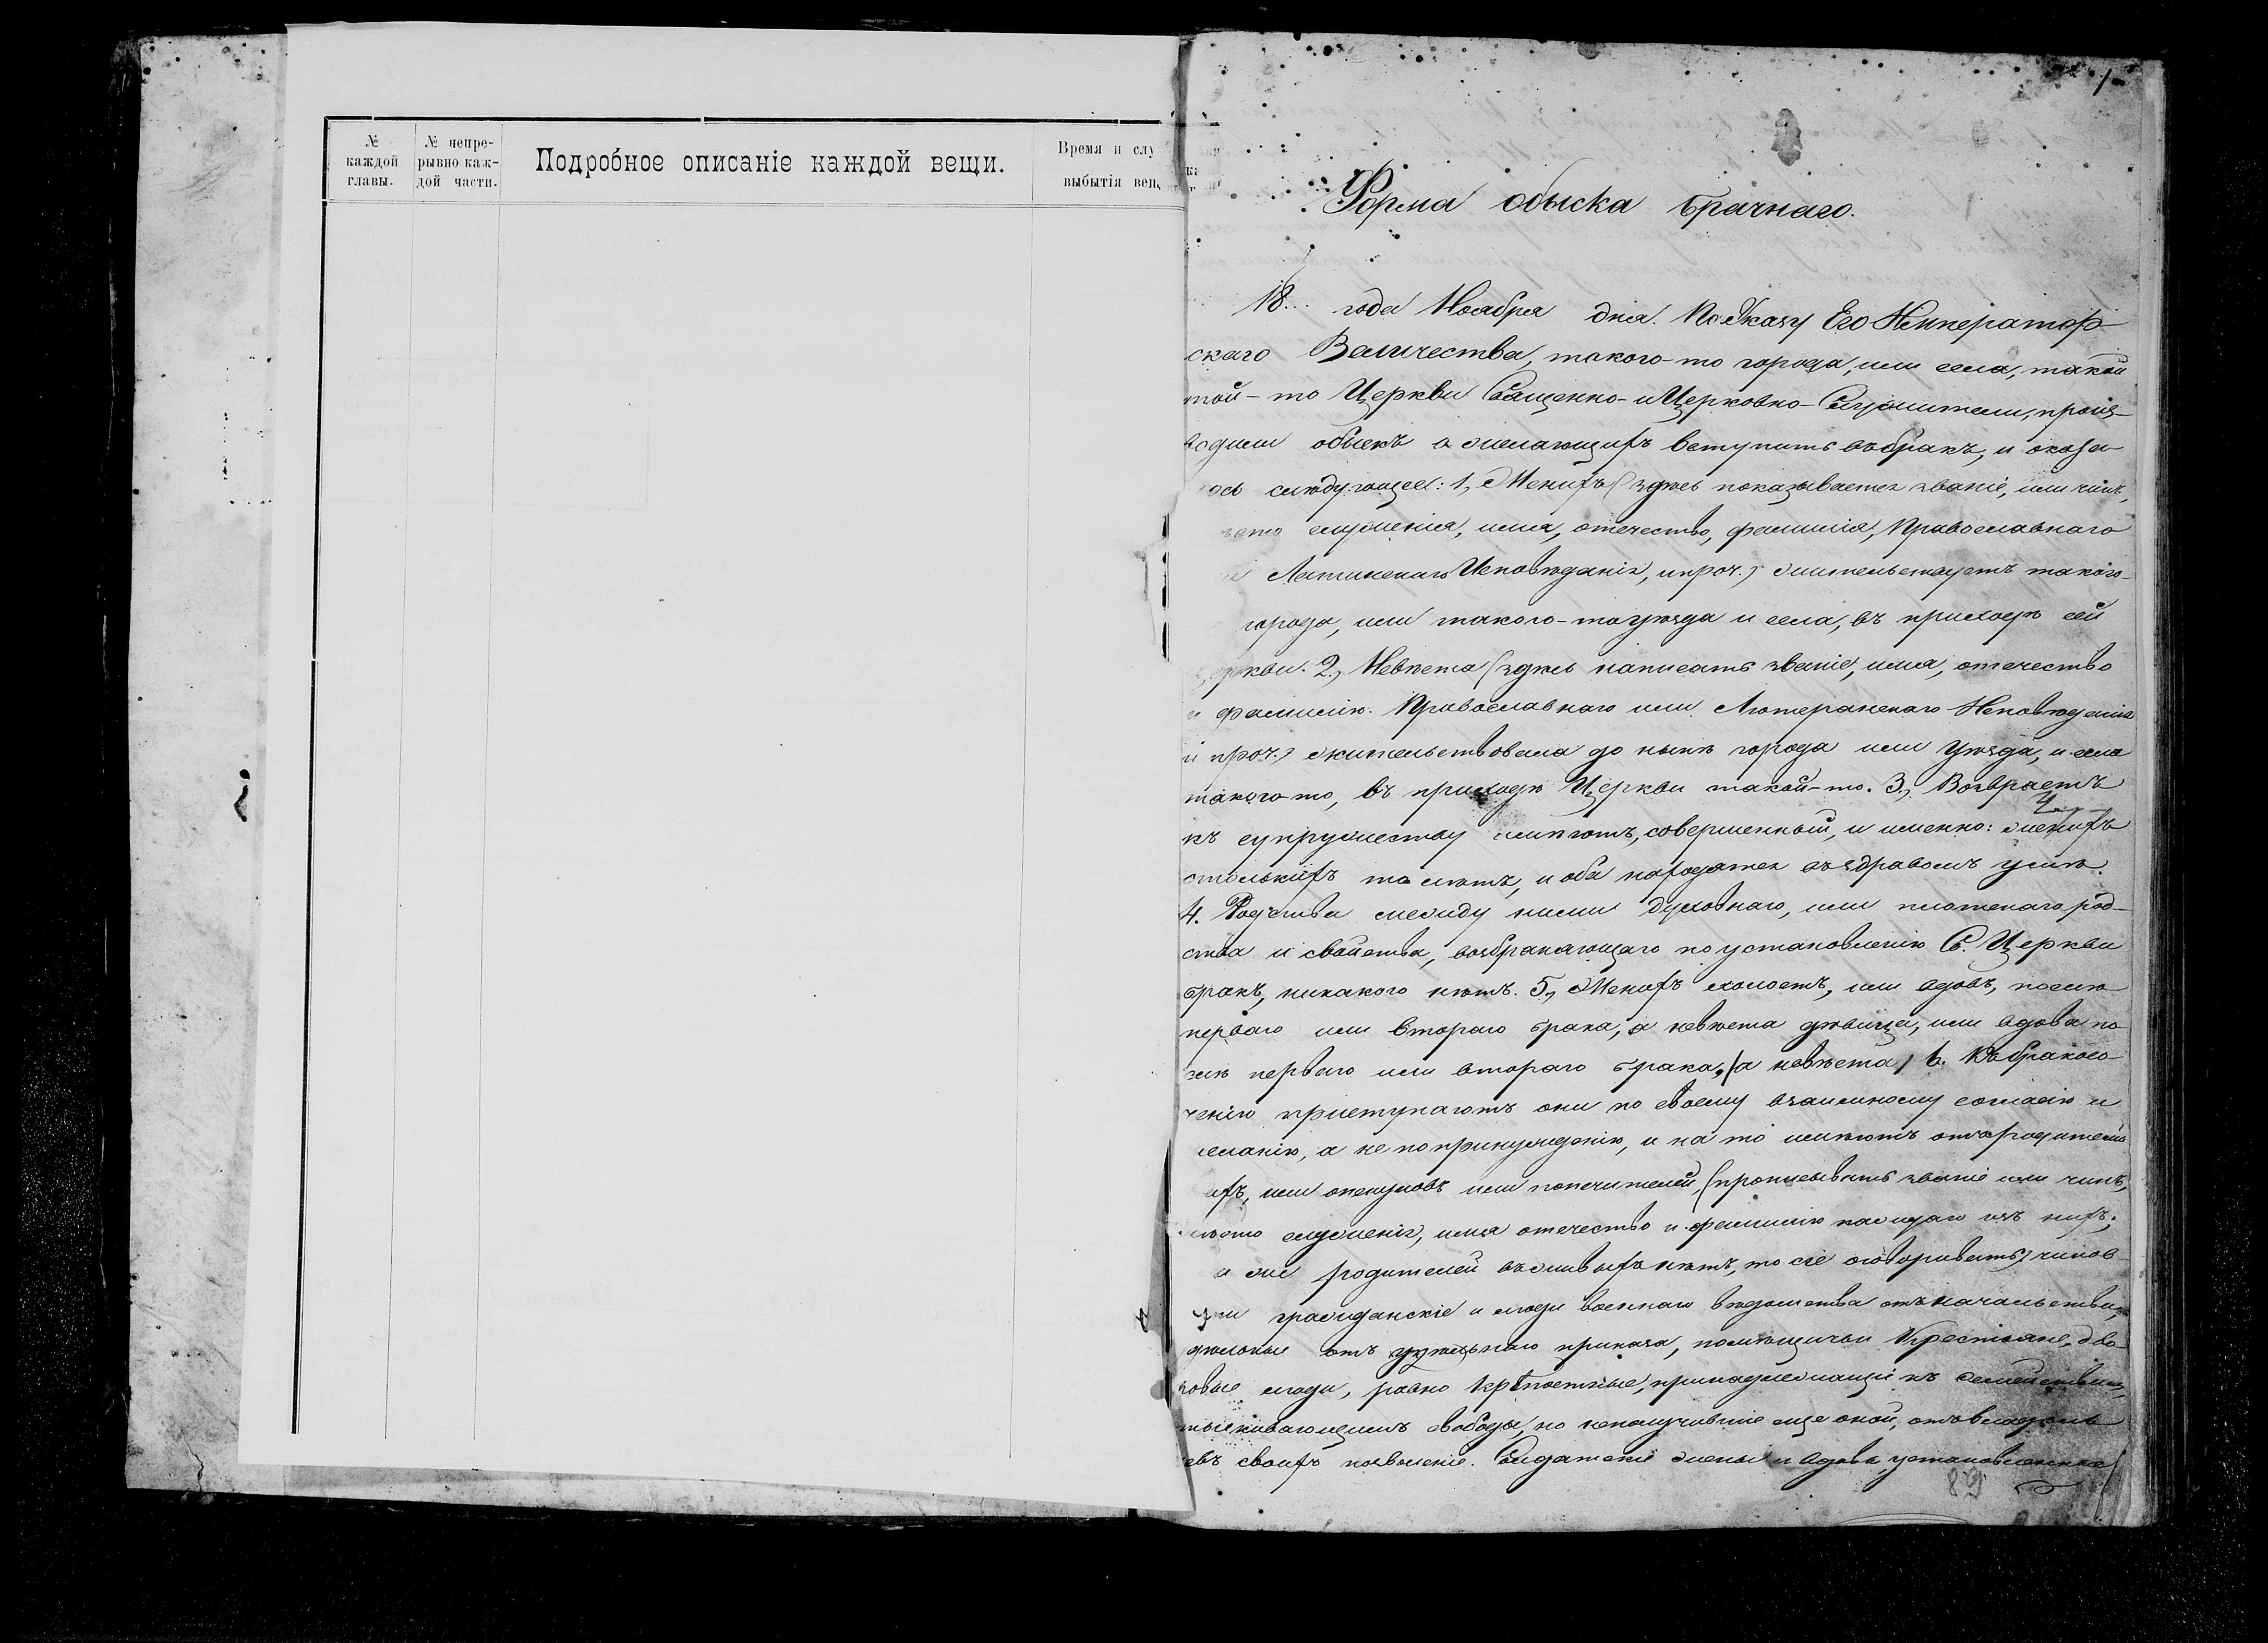 № каждой главы.
№ непре-рывно каж-дой части.
Подробное описаніе каждой вещи.
Время и слу
выбытія вещ
1
Форма обыска брачнаго.
18... года Ноября дня. По Указу Его Император-
скаго Величества, такого-то города, или села, такой
той-то Церкви Священно- и Церковно-Служители, произ-
водили обыскъ о желающихъ вступить въ бракъ, и оказа-
ось слѣдующее: 1, Женихъ (здѣсь показывается званіе, или чинъ,
служенія, имя, отечество, фамилія, Православнаго
Латинскаго Исповѣданія, и проч.) жительствуетъ такого-
города, или такого-то уѣзда и села, въ приходѣ сей
ркви. 2, Невѣста (здѣсь написать званіе, имя, отечество
и фамилію. Православнаго или Лютеранскаго Исповѣданія
и проч.) жительствовала до нынѣ города или уѣзда, и села
такого-то, въ приходѣ Церкви такой-то. 3, Возврастъ
къ супружеству имѣютъ, совершенный, и именно: женихъ
столькихъ то лѣтъ, и оба находятся въ здравомъ умѣ.
4. Родства между ними духовнаго, или плотскаго род-
ства и свойства, возбраняющаго по установленію Св. Церкви
бракъ, никакого нѣтъ. 5, Женихъ холостъ, или вдовъ, послѣ
перваго или втораго брака, а невѣста дѣвица, или вдова по
слѣ перваго или втораго брака, (а невѣста) 6. Къ бракосо-
ченію приступаютъ они по своему взаимному согласію и
желанію, а не по принужденію, и на то имѣютъ отъ родителей
ихъ, или опекуновъ или попечителей, (прописывать званіе или чинъ,
мѣсто служенія, имя отечество и фамилію каждаго изъ нихъ;
а же родителей въ живыхъ нѣтъ, то сіе оговоривать) чинов
гражданскіе и люди военнаго вѣдомства отъ начальства,
дѣльные отъ удѣльнаго приказа, помѣщичьи Крестьяне, дво
ровые люди, равно крѣпостные, принадлежащіе къ семействамъ,
тыскивающимъ свободы, но неполучившіе еще оной, отъ владѣль
евъ своихъ позволеніе. Солдатскіе жены и вдовы установленное
82